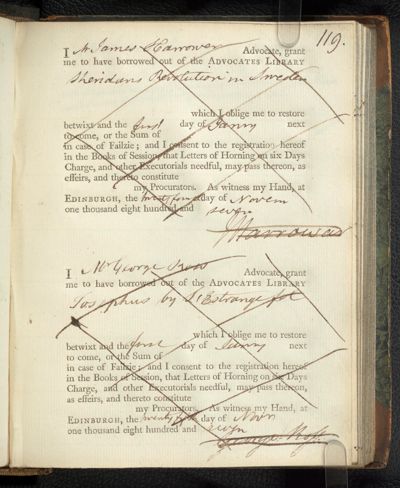 119.
I Mr James Harrower Advocate, grant
me to have borrowed out of the ADVOCATES LIBRARY
Sheridans Revolution in Sweden
which I oblige me to restore
betwixt and the first day of Janry next
to come, or the Sum of
in case of Failzie; and I consent to the registration hereof
in the Books of Session, that Letters of Horning on six Days
Charge, and other Executorials needful, may pass thereon, as
effeirs, and thereto constitute
my Procurators. As witness my Hand, at
EDINBURGH, the day of Novem
one thousand eight hundred and seven
JHarrower
I Mr George Ross Advocate, grant
me to have borrowed out of the ADVOCATES LIBRARY
Josephus by L'Estrange fol
which I oblige me to restore
betwixt and the first day of Janry next
to come, or the Sum of
in case of Failzie; and I consent to the registration hereof
in the Books of Session, that Letters of Horning on six Days
Charge, and other Executorials needful, may pass thereon,
as effeirs, and thereto constitute
my Procurators. As witness my Hand, at
EDINBURGH, the twenty fifth day of Novr
one thousand eight hundred and seven
George Ross